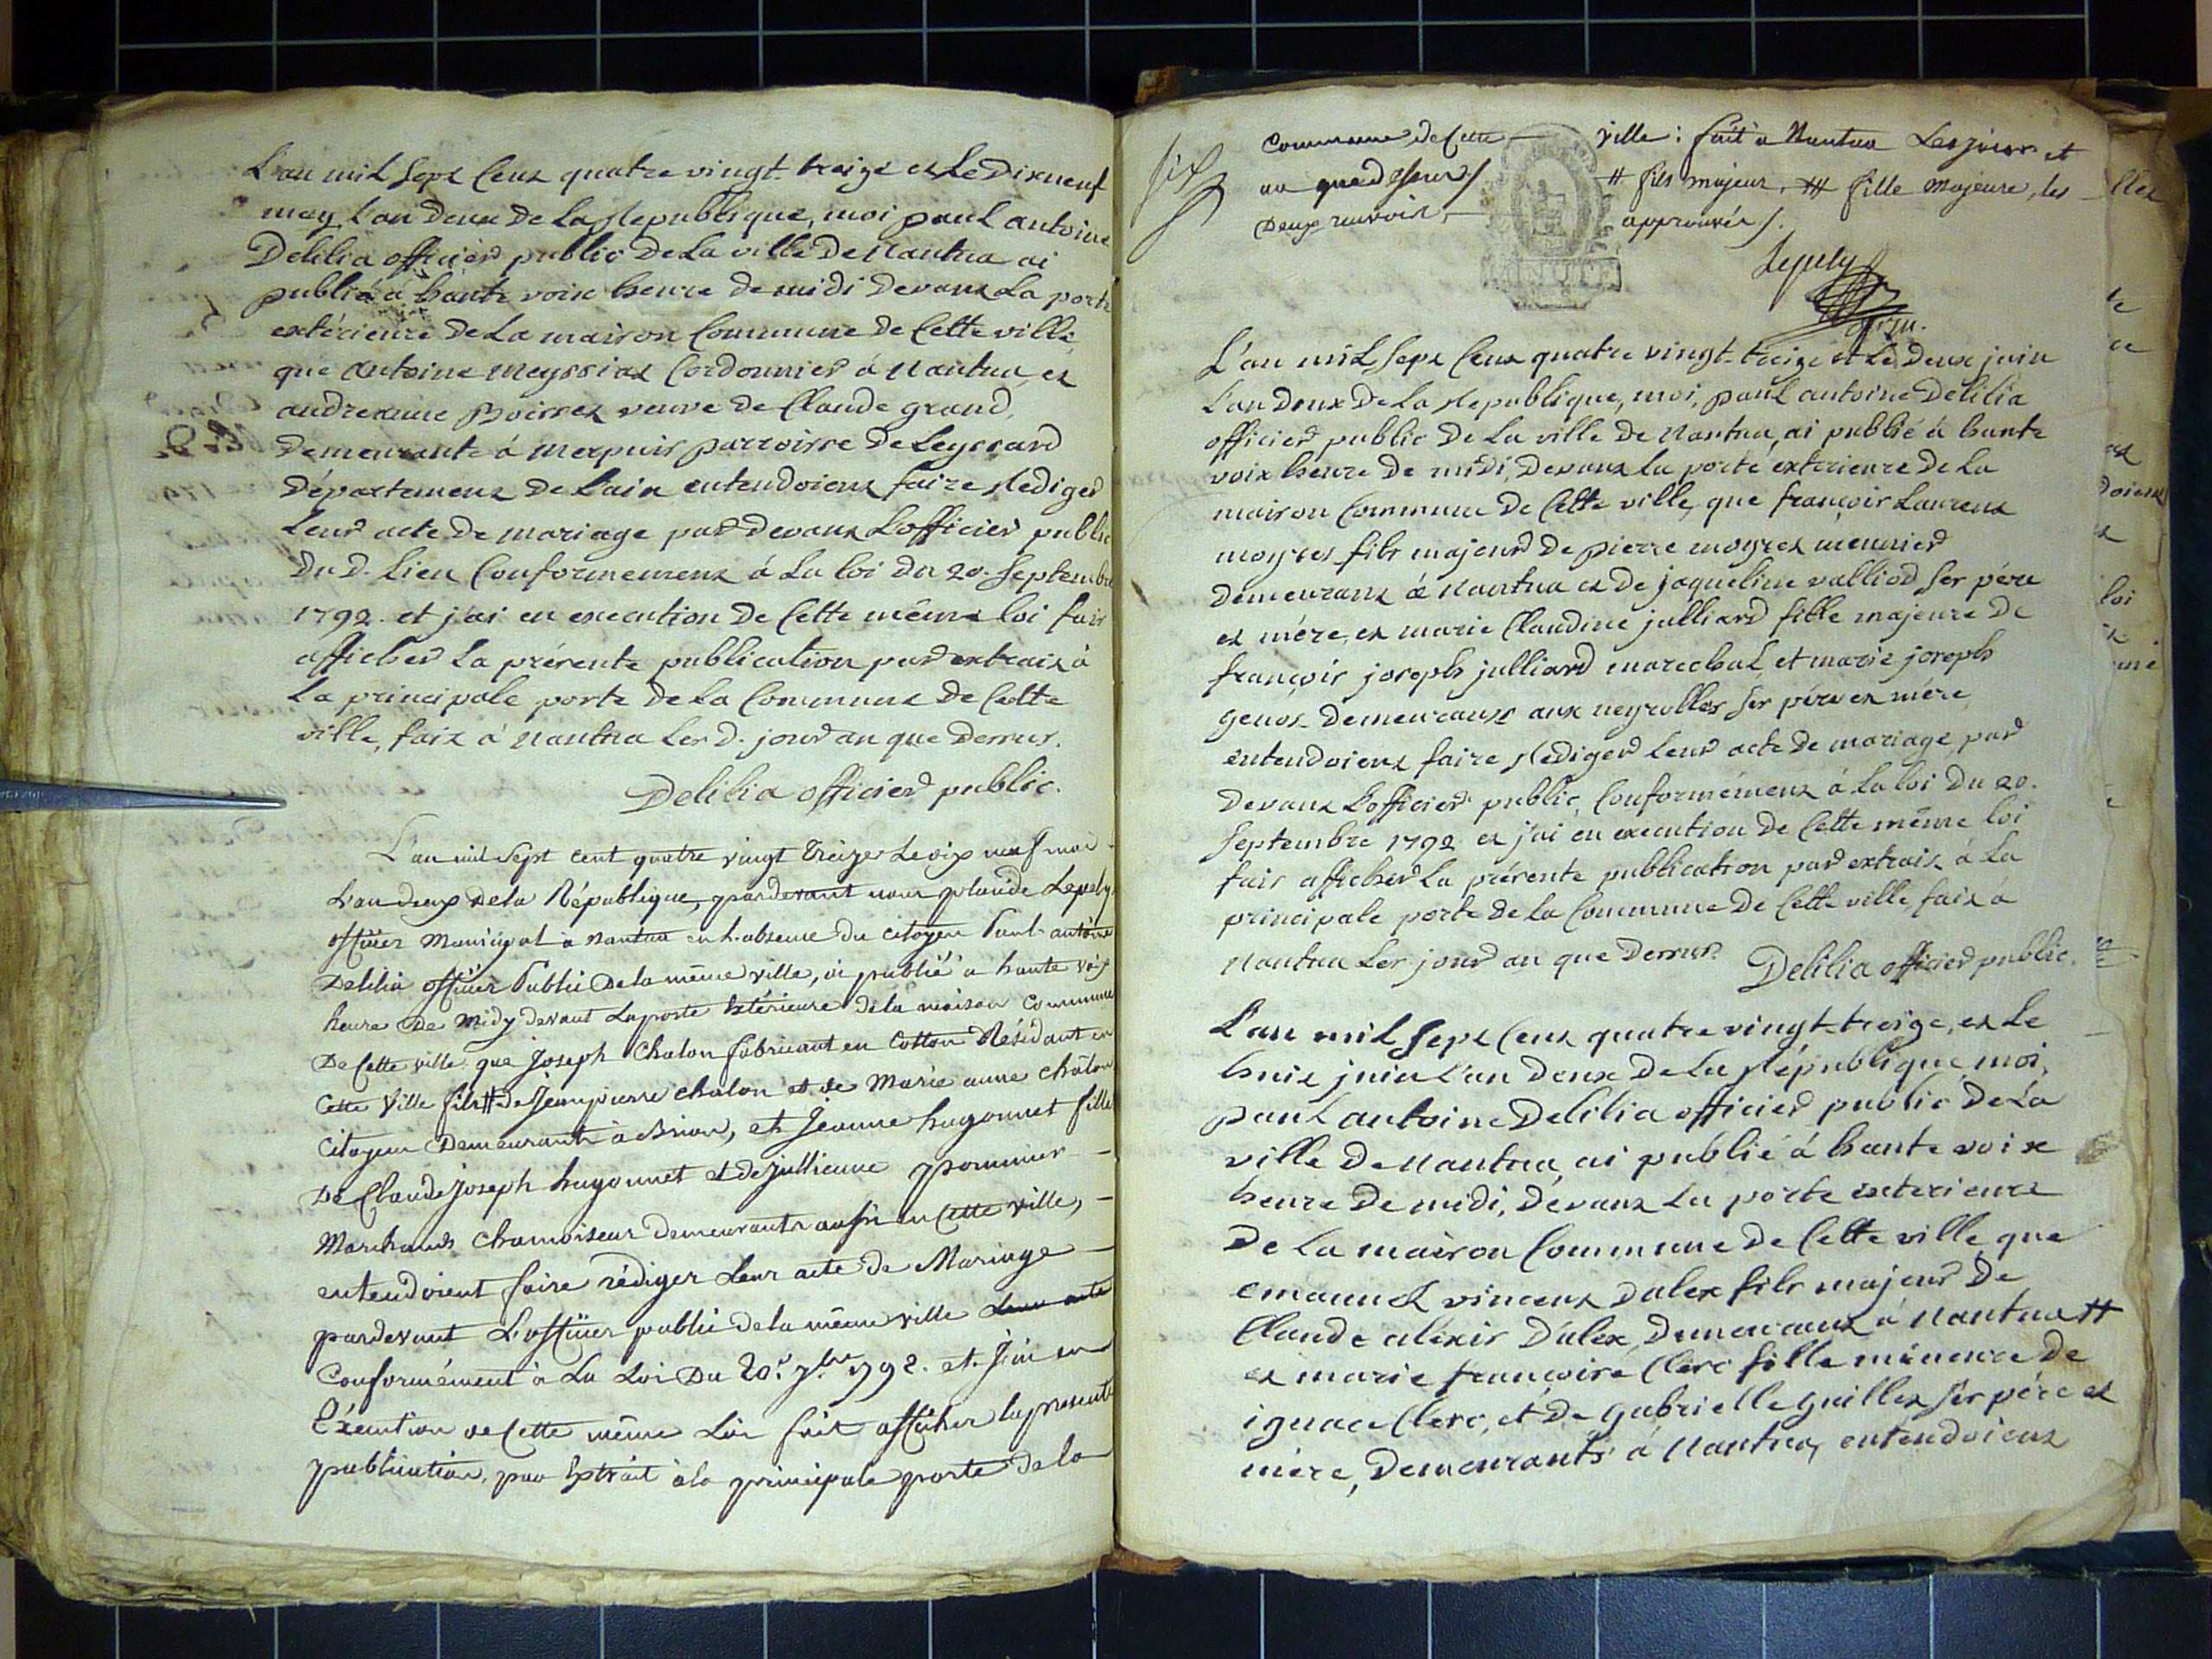 L'an mil sept cent quatre vingt-treize et le dixneuf
may l'an deux de la Republique, moi paul antoine
Delilia officier public de la ville de Nantua ai
publié à haute voix heure de midi devant la porte
extérieure de la maison commune de cette ville,
que antoine meyssiat cordonnier à Nantua et
andreanne Boisset veuve de Claude grand,
demeurante à merpuis parroisse de Leyssard
département de l'ain entendoient faire rediger
leur acte de mariage par devant l'officier public
du d. lieu conformement à la loi du 20. septembre
1792. et j'ai en execution de cette même loi fait
afficher la présente publication par extrait à
la principale porte de la commune de cette
ville, fait à Nantua les d. jour an que dessus.
Delilia officier public.
L'an mil sept cent quatre vingt treize le dix neuf mai
l'an deux de la République, pardevant nous Claude Lepely
officier municipal à nantua en l'absence du citoyen Paul antoine
Delilia officier Public de la même ville, ai publié a haute voix
heure de midy devant la porte Extérieure de la maison commune
de cette ville que Joseph Chalon fabricant en cotton Résidant en
cette ville fils # de Jeanpierre chalon et de Marie anne châlon
citoyen demeurants à Brion, et Jeanne hugonnet fille
de Claude joseph hugonnet et de jullienne pommier
marchands chamoiseur demeurants aussi en cette ville,
entendoient faire rédiger leur acte de Mariage
pardevant l'officier public de la même ville leur acte
conformément à la Loi du 20. 7bre 1792. et j'ai en
l'éxecution de cette même Loi fait afficher la presente
publication, par Extrait à la principale porte de la
commune de cette ville : fait à Nantua Les jour et
an que dessus /. # fils majeur, ## fille majeure, les
deux renvois, approuvés /.
Lepely
L'an mil sept cent quatre vingt-treize et le deux juin
l'an deux de la Republique, moi, paul antoine Delilia
officier public de la ville de Nantua, ai publié à haute
voix heure de midi, devant la porte exterieure de la
maison commune de cette ville, que françois Laurent
moyret fils majeur de pierre moyret meunier
demeurant à Nantua et de jaqueline valliod ses père
et mére, et marie Claudine julliard fille majeure de
françois joseph julliard marechal, et marie joseph
genos demeurants aux neyrolles ses père et mère,
entendoient faire rediger leur acte de mariage par
devant l'officier public, conformément à la loi du 20.
septembre 1792 et j'ai en execution de cette même loi
fait afficher la présente publication par extrait à la
principale porte de la commune de cette ville, fait à
Nantua les jour an que dessus. Delilia officier public.
L'an mil sept cent quatre vingt-treize, et le
huit juin l'an deux de la République, moi,
paul antoine Delilia officier public de la
ville de Nantua, ai publié à haute voix
heure de midi, devant la porte exterieure
de la maison commune de cette ville que
emanuel vincent dalex fils majeur de
Claude alexis dalex, demeurant à Nantua #
et marie françoise Clerc fille mineure de
ignace Clerc, et de gabrielle guillet ses père et
mère, demeurants à Nantua, entendoient